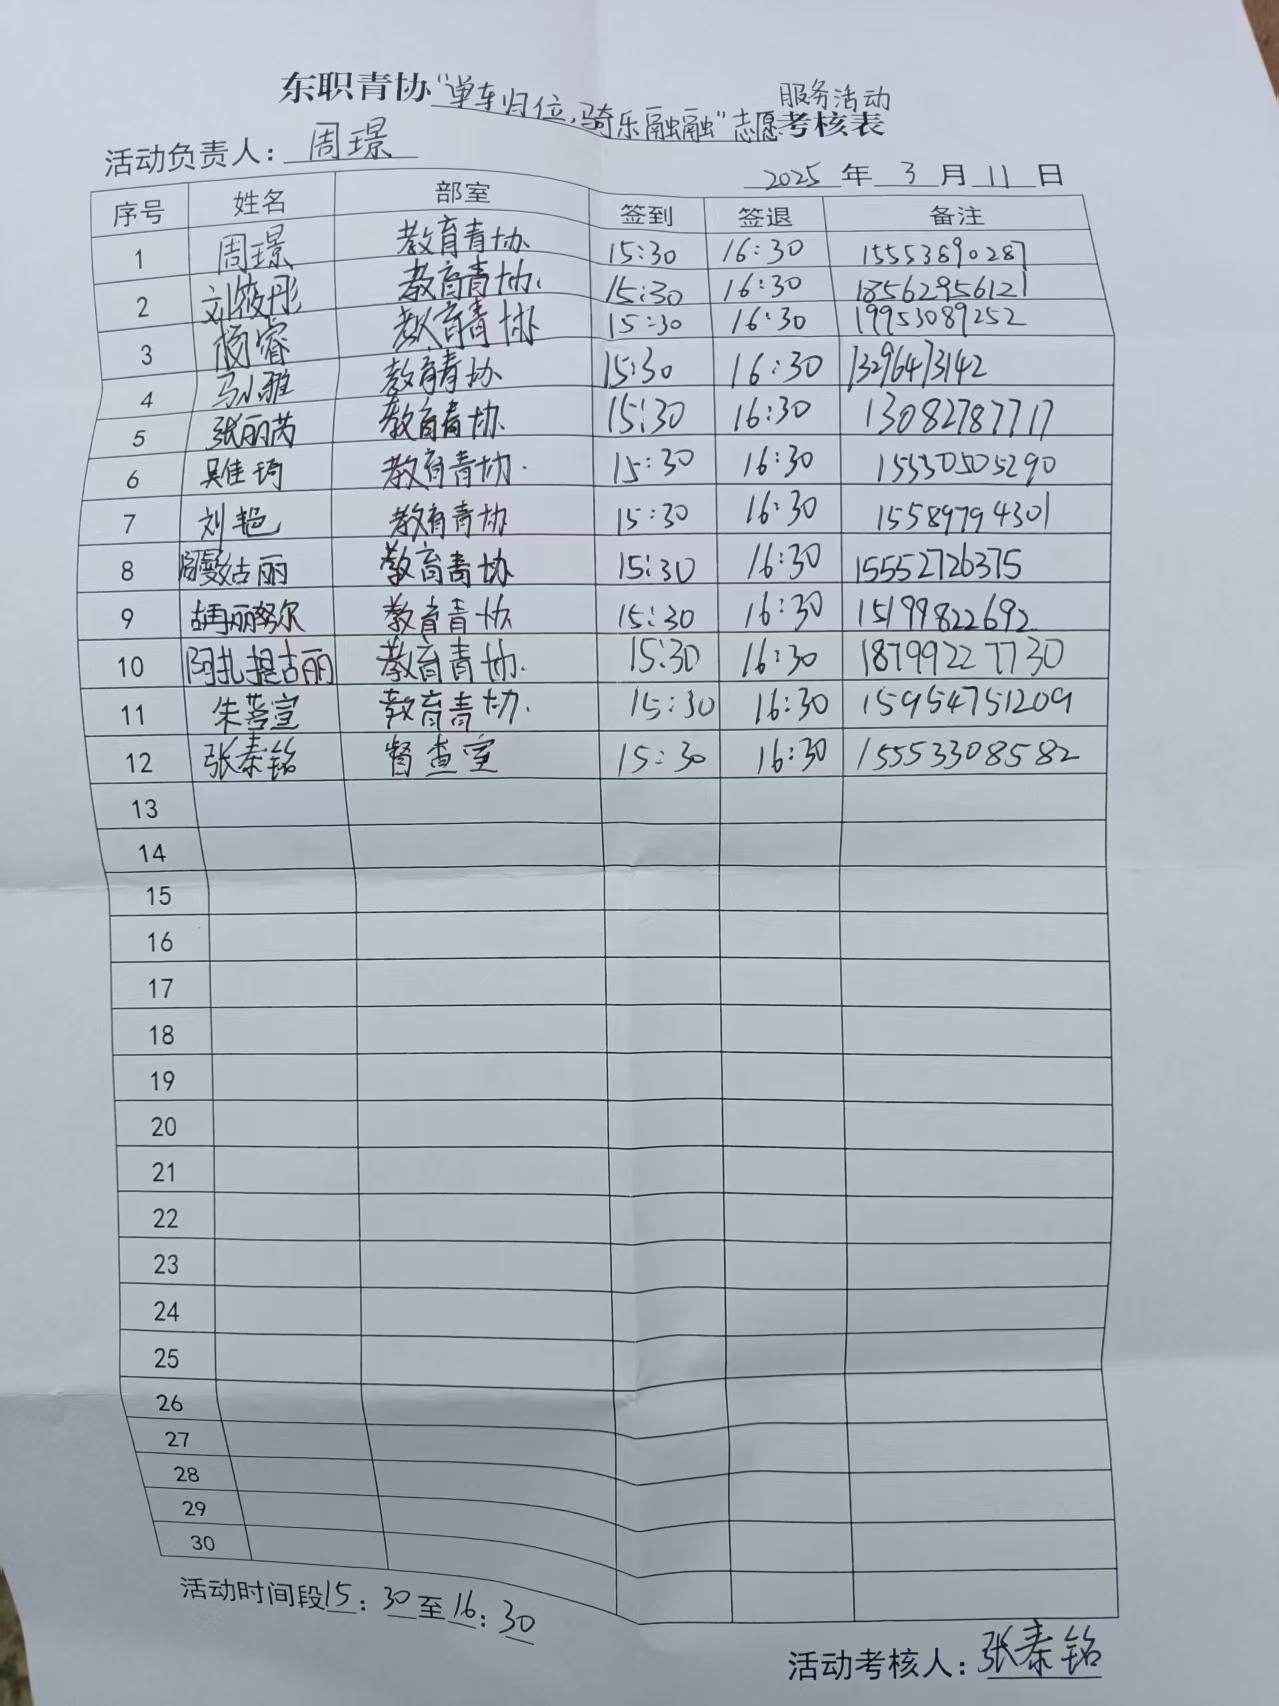 东职青协“单车归位,骑乐融融”志愿服务活动考核表
活动负责人：周璟
2025年3月11日
序号 姓名 部室 签到 签退 备注
1 周璟 教育青协 15:30 16:30 15553890287
2 刘筱彤 教育青协 15:30 16:30 18562956121
3 杨睿 教育青协 15:30 16:30 19953089252
4 马小雅 教育青协 15:30 16:30 13296473142
5 张丽芮 教育青协 15:30 16:30 13082787717
6 吴佳琦 教育青协 15:30 16:30 15530505290
7 刘艳 教育青协 15:30 16:30 15589794301
8 古丽 教育青协 15:30 16:30 15552726375
9 胡再丽努尔 教育青协 15:30 16:30 15199822692
10 阿扎提古丽 教育青协 15:30 16:30 18799227730
11 朱萱 教育青协 15:30 16:30 15954751209
12 张泰铭 督查室 15:30 16:30 15553308582
13
14
15
16
17
18
19
20
21
22
23
24
25
26
27
28
29
30
活动时间段15：30至16：30
活动考核人：张泰铭